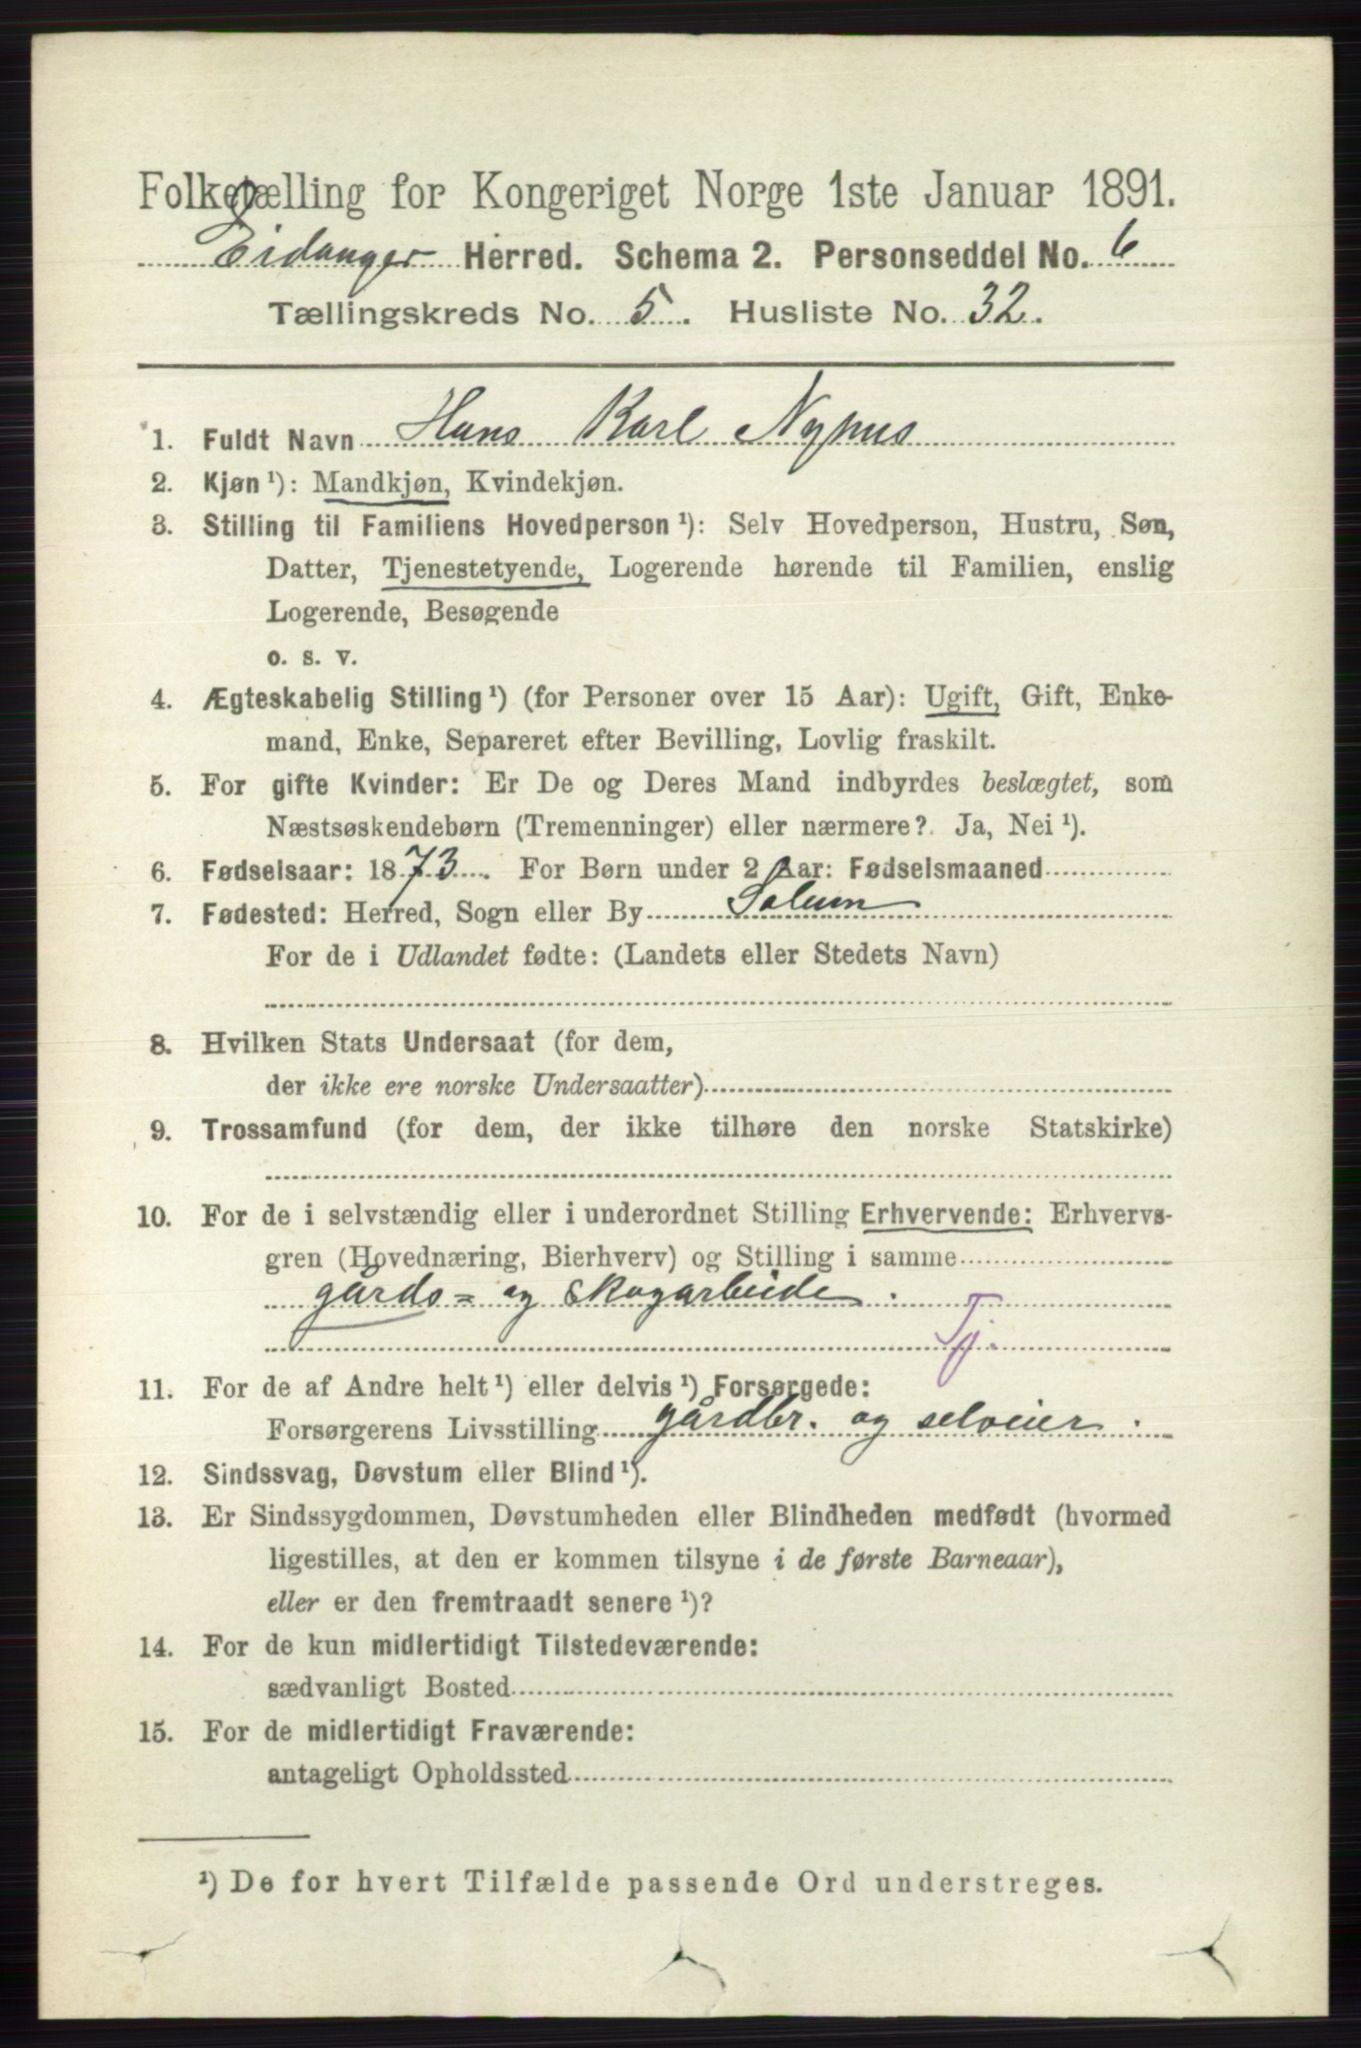 Folketælling for Kongeriget Norge 1ste Januar 1891.
Eidanger Herred. Schema 2. Personseddel No. 6
Tællingskreds No. 5. Husliste No. 32.
1. Fuldt Navn Hans Karl Nyhus
2. Kjøn ¹): Mandkjøn, Kvindekjøn.
3. Stilling til Familiens Hovedperson ¹): Selv Hovedperson, Hustru, Søn,
Datter, Tjenestetyende, Logerende hørende til Familien, enslig
Logerende, Besøgende
o. s. v.
4. Ægteskabelig Stilling ¹) (for Personer over 15 Aar): Ugift, Gift, Enke-
mand, Enke, Separeret efter Bevilling, Lovlig fraskilt.
5. For gifte Kvinder: Er De og Deres Mand indbyrdes beslægtet, som
Næstsøskendebørn (Tremenninger) eller nærmere? Ja, Nei ¹).
6. Fødselsaar: 1873. For Børn under 2 Aar: Fødselsmaaned
7. Fødested: Herred, Sogn eller By Solum
For de i Udlandet fødte: (Landets eller Stedets Navn)
8. Hvilken Stats Undersaat (for dem,
der ikke ere norske Undersaatter)
9. Trossamfund (for dem, der ikke tilhøre den norske Statskirke)
10. For de i selvstændig eller i underordnet Stilling Erhvervende: Erhvervs-
gren (Hovednæring, Bierhverv) og Stilling i samme
gårds- og skogarbeide.
Tj.
11. For de af Andre helt ¹) eller delvis ¹) Forsørgede:
Forsørgerens Livsstilling gårdbr. og selveier.
12. Sindssvag, Døvstum eller Blind ¹).
13. Er Sindssygdommen, Døvstumheden eller Blindheden medfødt (hvormed
ligestilles, at den er kommen tilsyne i de første Barneaar),
eller er den fremtraadt senere ¹)?
14. For de kun midlertidigt Tilstedeværende:
sædvanligt Bosted
15. For de midlertidigt Fraværende:
antageligt Opholdssted
¹) De for hvert Tilfælde passende Ord understreges.